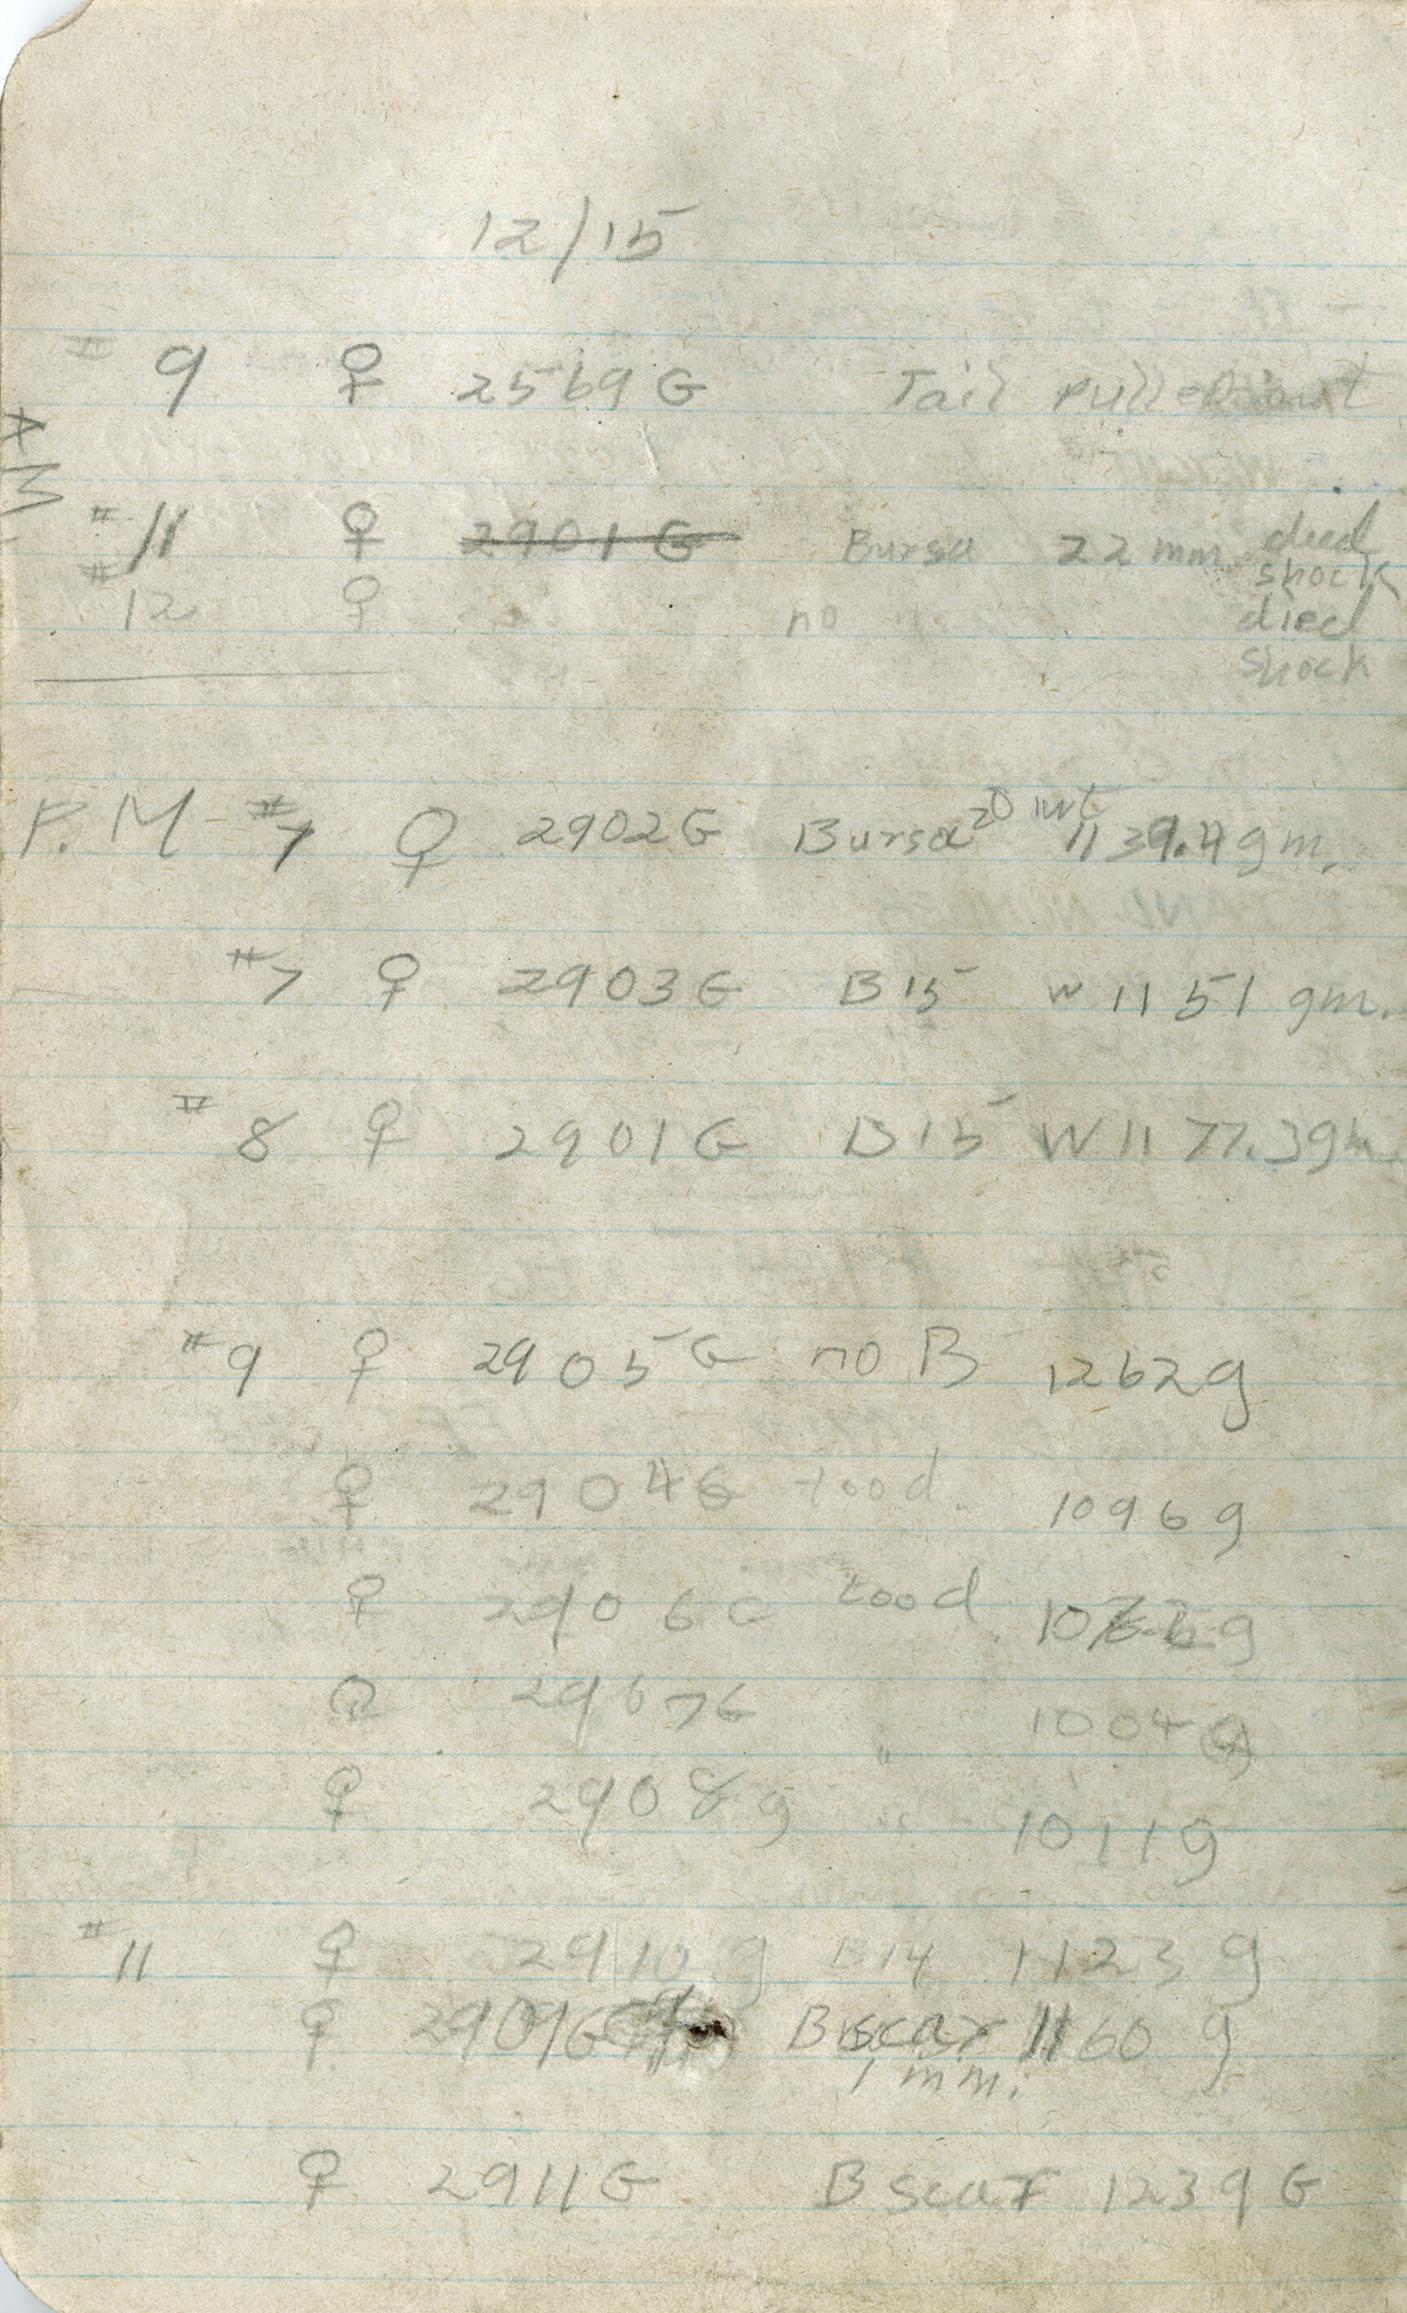 12/15
# 9 ♀ 2569 G Tail pulled out
AM
# 11 ♀ 2901 G Bursa 22 mm died shock
# 12 ♀ no died shock
P.M #7 ♀ 2902 G Bursa 20 wt 1139.4 gm.
#7 ♀ 2903 G B 15 W 1151 gm.
#8 ♀ 2901 G B 15 W 1177.3 gm.
#9 ♀ 2905 G no B 1262 g
♀ 2904 G 1096 g
♀ 2906 G g
2907 G " 1004 G
♀ 2908 g " 1011 g
# 11 ♀ 2910 g B 14 1123 g
♀ 2909 G B scar 1160 g
1 mm.
♀ 2911 G B scar 1239 G